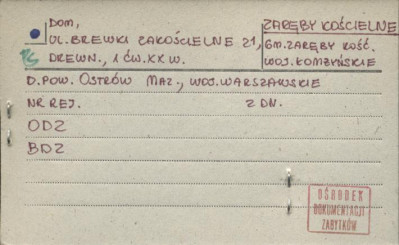 DOM,
UL. BREWKI ZAKOŚCIELNE 21,
DREWN., 1 ĆW. XX W.
ZARĘBY KOŚCIELNE
GM. ZARĘBY KOŚC.
WOJ. ŁOMŻYŃSKIE
D. POW. OSTRÓW MAZ., WOJ. WARSZAWSKIE
NR REJ. Z DN.
ODZ
BDZ
OŚRODEK
DOKUMENTACJI
ZABYTKÓW